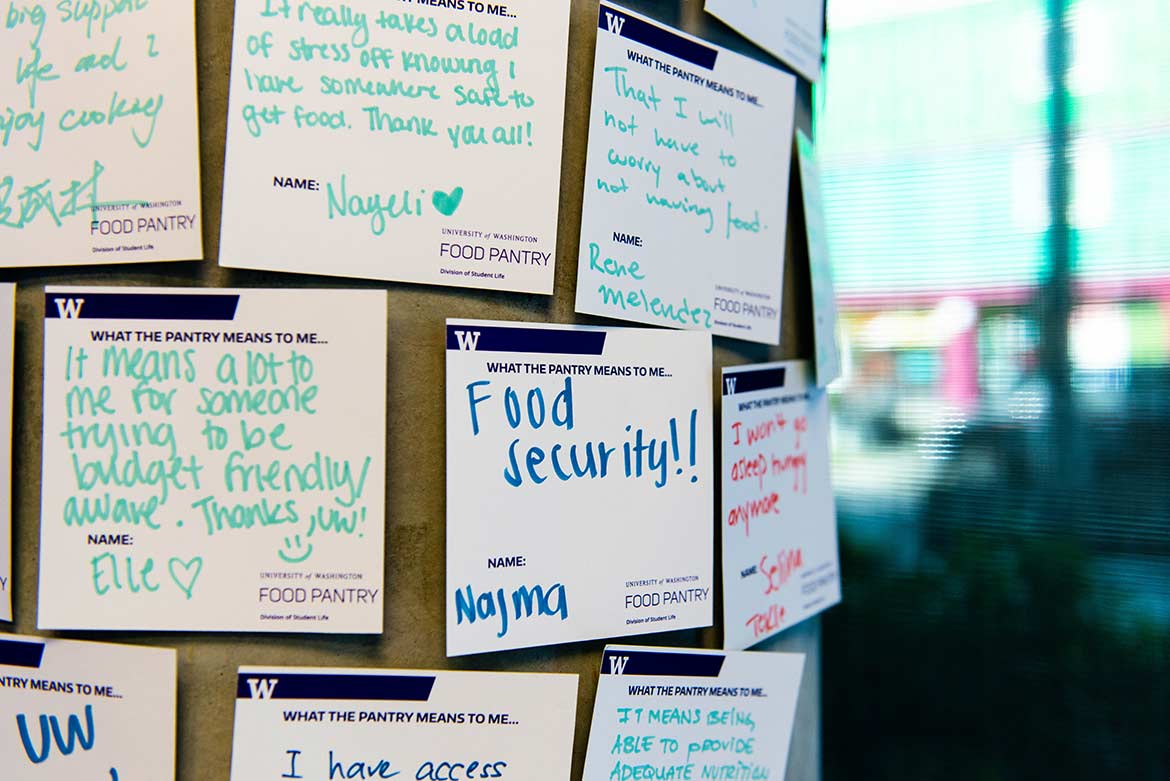 big support
life and I
enjoy cooking
UNIVERSITY of WASHINGTON
FOOD PANTRY
Division of Student Life
THE PANTRY MEANS TO ME...
It really takes a load
of stress off knowing I
have somewhere safe to
get food. Thank you all!
NAME: Nayeli
UNIVERSITY of WASHINGTON
FOOD PANTRY
Division of Student Life
W
WHAT THE PANTRY MEANS TO ME...
That I will
not have to
worry about
not having food.
NAME:
Rene
melendez
UNIVERSITY of WASHINGTON
FOOD PANTRY
Division of Student Life
W
WHAT THE PANTRY MEANS TO ME...
It means a lot to
me for someone
trying to be
budget friendly/
aware. Thanks, UW!
NAME:
Elle
UNIVERSITY of WASHINGTON
FOOD PANTRY
Division of Student Life
W
WHAT THE PANTRY MEANS TO ME...
Food
security!!
NAME:
Najma
UNIVERSITY of WASHINGTON
FOOD PANTRY
Division of Student Life
W
WHAT THE PANTRY MEANS TO ME...
I won't go
asleep hungry
anymore
NAME:
FOOD PANTRY
PANTRY MEANS TO ME...
UW
W
WHAT THE PANTRY MEANS TO ME...
I have access
W
WHAT THE PANTRY MEANS TO ME...
IT MEANS BEING
ABLE TO PROVIDE
ADEQUATE NUTRITION